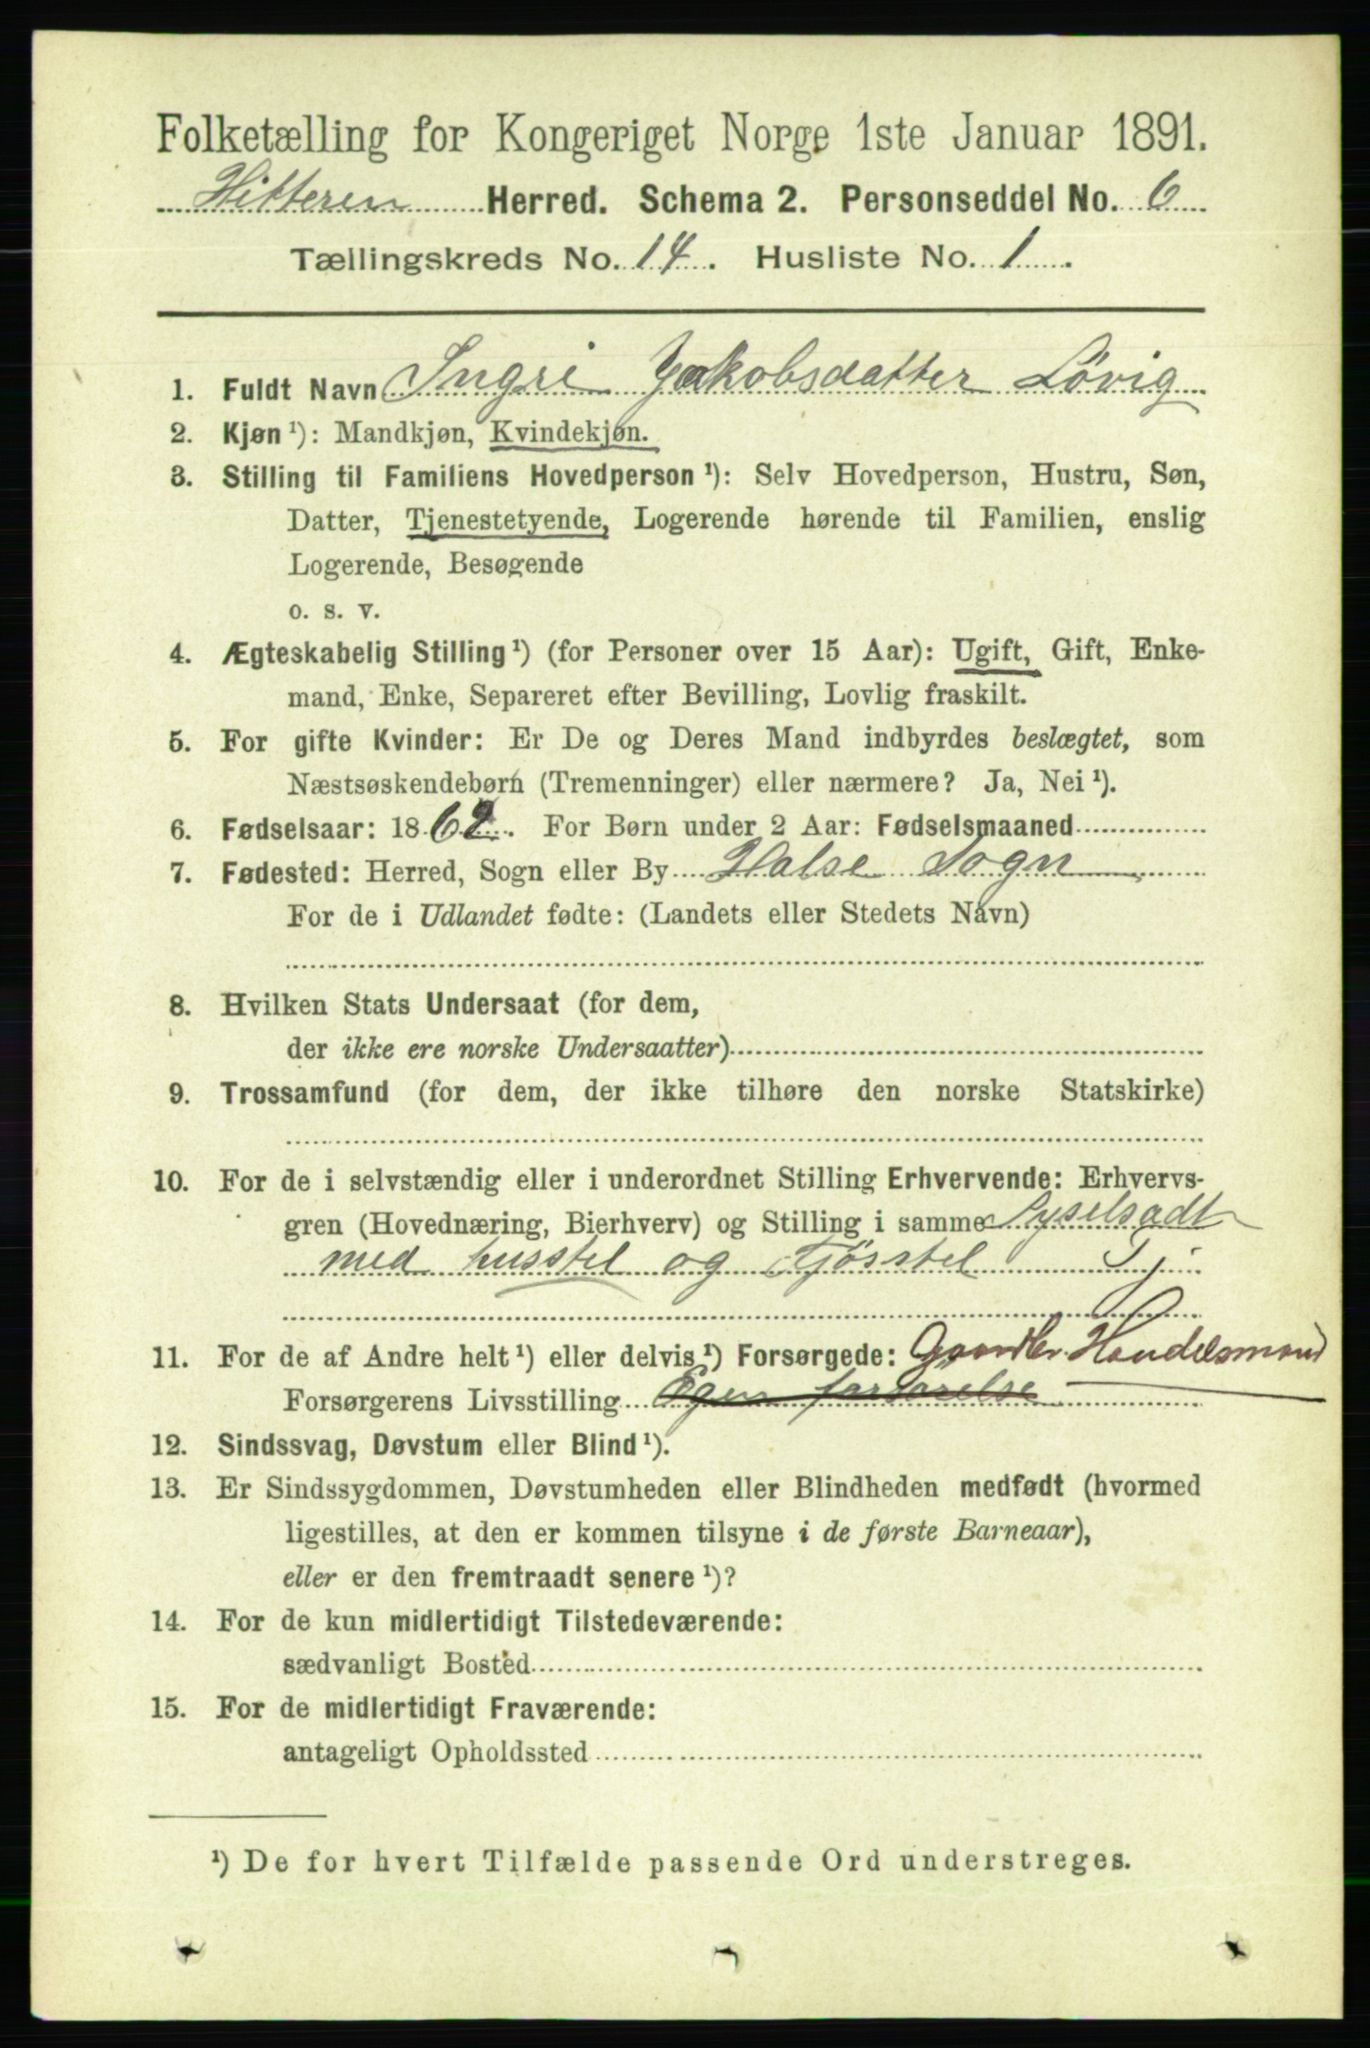 Folketælling for Kongeriget Norge 1ste Januar 1891.
Hitteren Herred. Schema 2. Personseddel No. 6
Tællingskreds No. 14. Husliste No. 1.
1. Fuldt Navn Ingri Jakobsdatter Løvig
2. Kjøn ¹): Mandkjøn, Kvindekjøn.
3. Stilling til Familiens Hovedperson ¹): Selv Hovedperson, Hustru, Søn,
Datter, Tjenestetyende, Logerende hørende til Familien, enslig
Logerende, Besøgende
o. s. v.
4. Ægteskabelig Stilling ¹) (for Personer over 15 Aar): Ugift, Gift, Enke-
mand, Enke, Separeret efter Bevilling, Lovlig fraskilt.
5. For gifte Kvinder: Er De og Deres Mand indbyrdes beslægtet, som
Næstsøskendebørn (Tremenninger) eller nærmere? Ja, Nei ¹).
6. Fødselsaar: 1862. For Børn under 2 Aar: Fødselsmaaned
7. Fødested: Herred, Sogn eller By Halse Sogn
For de i Udlandet fødte: (Landets eller Stedets Navn)
8. Hvilken Stats Undersaat (for dem,
der ikke ere norske Undersaatter)
9. Trossamfund (for dem, der ikke tilhøre den norske Statskirke)
10. For de i selvstændig eller i underordnet Stilling Erhvervende: Erhvervs-
gren (Hovednæring, Bierhverv) og Stilling i samme Syselsadt
med husstel og Fjøsstel Tj
11. For de af Andre helt ¹) eller delvis ¹) Forsørgede: Gaardbr. Handelsmand
Forsørgerens Livsstilling Egen
12. Sindssvag, Døvstum eller Blind ¹).
13. Er Sindssygdommen, Døvstumheden eller Blindheden medfødt (hvormed
ligestilles, at den er kommen tilsyne i de første Barneaar),
eller er den fremtraadt senere ¹)?
14. For de kun midlertidigt Tilstedeværende:
sædvanligt Bosted
15. For de midlertidigt Fraværende:
antageligt Opholdssted
¹) De for hvert Tilfælde passende Ord understreges.